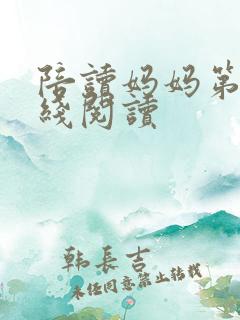 陪讀妈妈第
綫閱讀
韩長吉
未经同意禁止转载